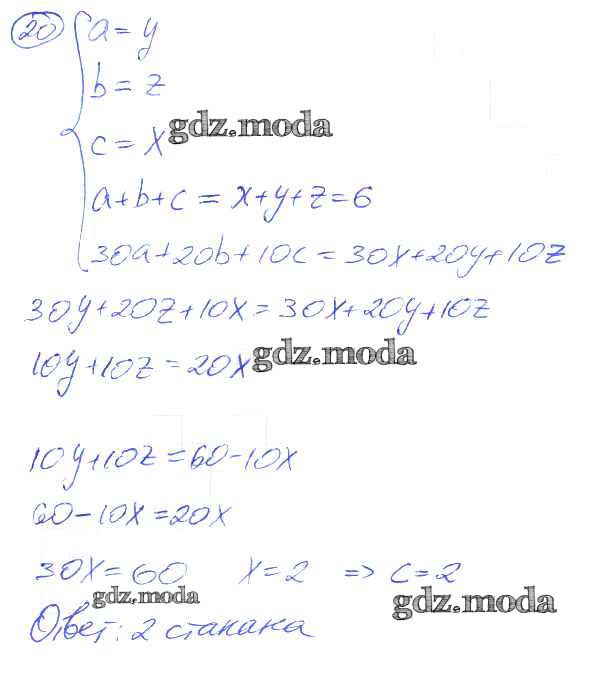 20 a = y
b = z
c = x gdz.moda
a+b+c = x+y+z=6
30a+20b+10c = 30x+20y+10z
30y+20z+10x=30x+20y+10z
10y+10z=20x gdz.moda
10y+10z=60-10x
60-10x=20x
30x=60 x=2 => c=2
gdz.moda gdz.moda
Ответ: 2 стакана